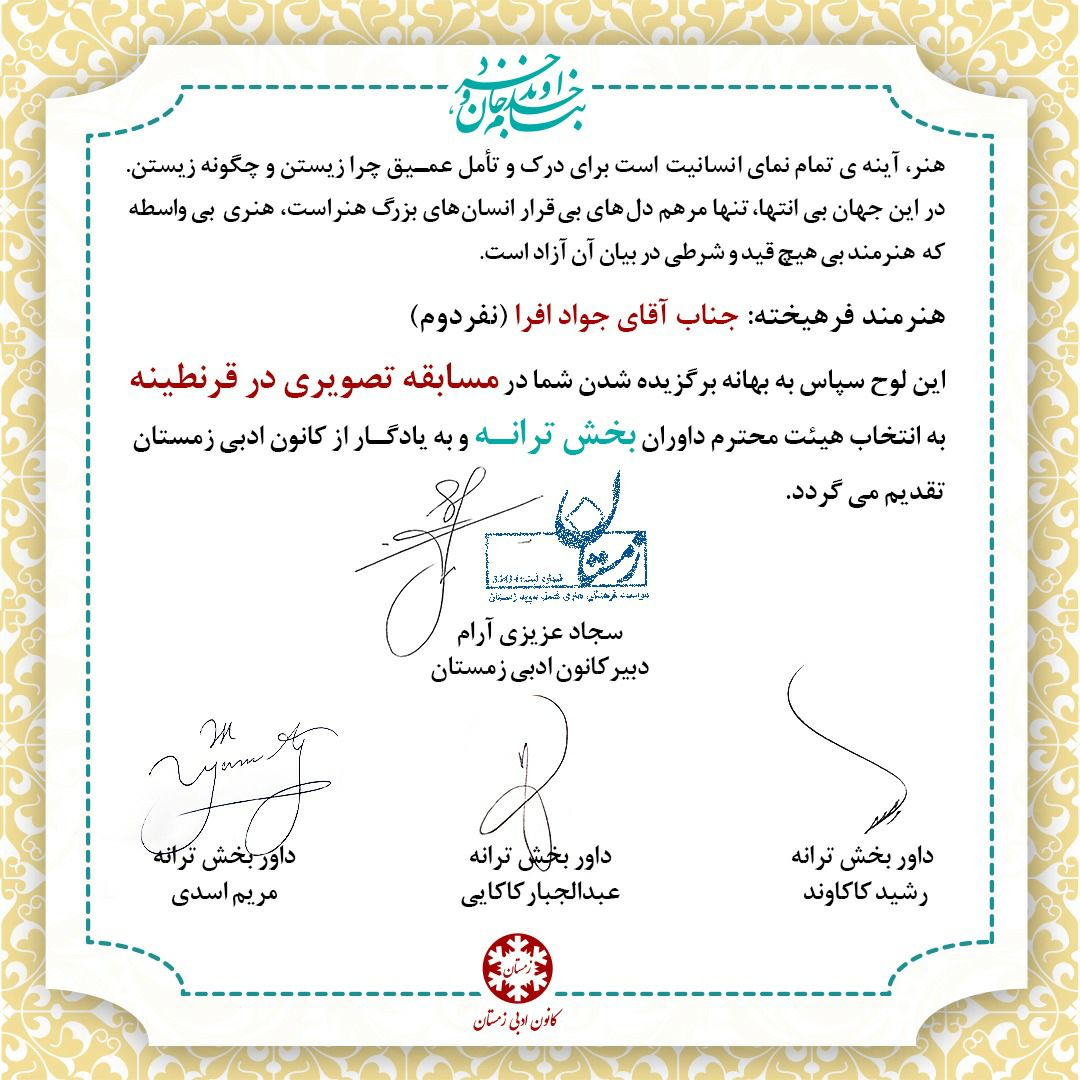 بنام خداوند جان و خرد
هنر، آینه ی تمام نمای انسانیت است برای درک و تأمل عمـیق چرا زیستن و چگونه زیستن.
در این جهان بی انتها، تنها مرهم دل های بی قرار انسان‌های بزرگ هنر است، هنری بی واسطه
که هنرمند بی هیچ قید و شرطی در بیان آن آزاد است.
هنرمند فرهیخته: جناب آقای جواد افرا (نفر دوم)
این لوح سپاس به بهانه برگزیده شدن شما در مسابقه تصویری در قرنطینه
به انتخاب هیئت محترم داوران بخش ترانـه و به یادگـار از کانون ادبی زمستان
تقدیم می گردد.
زمستان
شماره ثبت:
موسسه فرهنگی هنری
سجاد عزیزی آرام
دبیر کانون ادبی زمستان
داور بخش ترانه
رشید کاکاوند
داور بخش ترانه
عبدالجبار کاکایی
داور بخش ترانه
مریم اسدی
زمستان
کانون ادبی زمستان